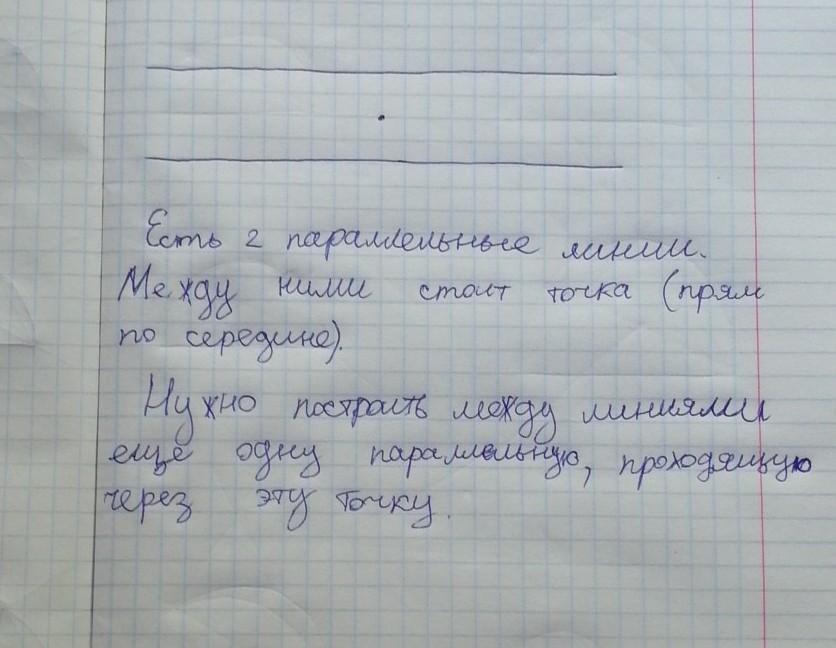 Есть 2 параллельные линии.
Между ними стоит точка (прям
по середине).
Нужно построить между линиями
еще одну параллельную, проходящую
через эту точку.